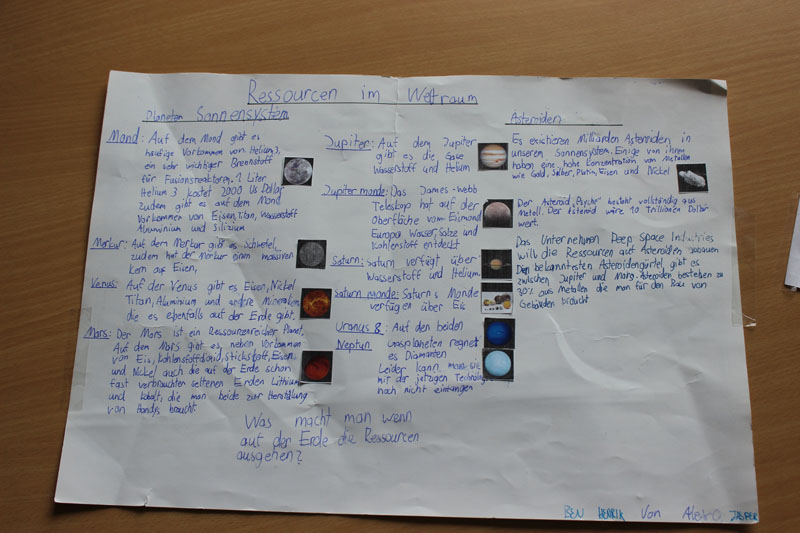 Ressourcen im Weltraum
Planeten Sonnensystem
Mond: Auf dem Mond gibt es
häufige Vorkommen von Helium3,
ein sehr wichtiger Brennstoff
für Fusionsreaktorm. 1 Liter
Helium 3 kostet 2000 Us Dollar
zudem gibt es auf dem Mond
Vorkommen von Eisen, Titan, Wasserstoff
Aluminium und Silizium
Merkur: Auf dem Merkur gibt es Schwefel,
zudem hat der Merkur einen massiven
Kern aus Eisen,
Venus: Auf der Venus gibt es Eisen, Nickel
Titan, Aluminium und andere Mineralien
die es ebenfalls auf der Erde gibt.
Mars: Der Mars ist ein Ressourcenreicher Planet.
Auf dem Mars gibt es, neben Vorkommen
von Eis, Kohlenstoffdioxid, Stickstoff, Eisen
und Nickel auch die auf der Erde schon
fast verbrauchten seltenen Erden Lithium
und Kobalt, die man beide zur Herstellung
von Handys braucht
Jupiter: Auf dem Jupiter
gibt es die Gase
Wasserstoff und Helium
Jupiter monde: Das James-Webb
Teleskop hat auf der
Oberfläche vom Eismond
Europa Wasser, Salze und
Kohlenstoff entdeckt
Saturn: Saturn verfügt über
Wasserstoff und Helium.
Saturn monde: Saturns Monde
verfügen über Eis
Uranus & : Auf den beiden
Neptun Gasplaneten regnet
es Diamanten
Leider kann man sie
mit der jetzigen Technologie
noch nicht einfangen
Asteroiden
Es existieren Milliarden Asteroiden in
unserem Sonnensystem. Einige von ihnen
haben eine hohe Konzentration von Metallen
wie Gold, Silber, Platin, Eisen und Nickel
Der Asteroid "Psyche" besteht vollständig aus
Metall. Der Asteroid wäre 10 Trillionen Dollar
wert.
Das Unternehmen Deep Space Industries
will die Ressourcen auf Asteroiden
Den bekanntesten Asteroidengürtel gibt es
zwischen Jupiter und Mars. Asteroiden bestehen zu
30% aus Metallen die man für den Bau von
Gebäuden braucht
Was macht man wenn
auf der Erde die Ressourcen
ausgehen?
BEN HENRIK von JASPER